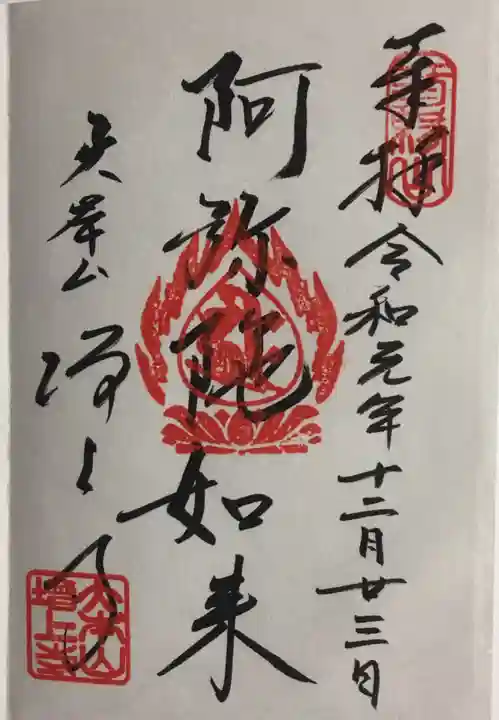 奉拝 令和元年十二月廿三日
阿弥陀如来
増上寺
大本山
増上寺